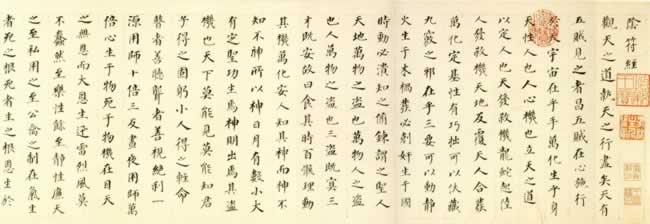 陰符經
觀天之道執天之行盡矣天有
五賊見之者昌五賊在心施行
於天宇宙在乎手萬化生乎身
天性人也人心機也立天之道
以定人也天發殺機龍蛇起陸
人發殺機天地反覆天人合發
萬化定基性有巧拙可以伏藏
九竅之邪在乎三要可以動靜
火生于木禍發必剋奸生于國
時動必潰知之脩鍊謂之聖人
天地萬物之盜也萬物人之盜
也人萬物之盜也三盜既宜三
才既安故曰食其時百骸理動
其機萬化安人知其神而神不
知不神所以神日月有數小大
有定聖功生焉神明出焉其盜
機也天下莫能見莫能知君
子得之固躬小人得之輕命
瞽者善聽聾者善視絕利一
源用師十倍三反晝夜用師萬
倍心生于物死于物機在目天
之無恩而大恩生迅雷烈風莫
不蠢然至樂性餘至靜性廉天
之至私用之至公禽之制在氣生
者死之根死者生之根恩生於